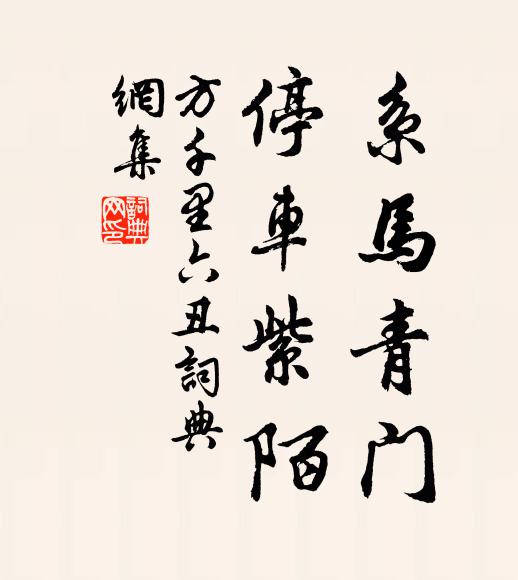 系馬青门
停車紫陌
方千里六丑詞典
網集
詞典
网印